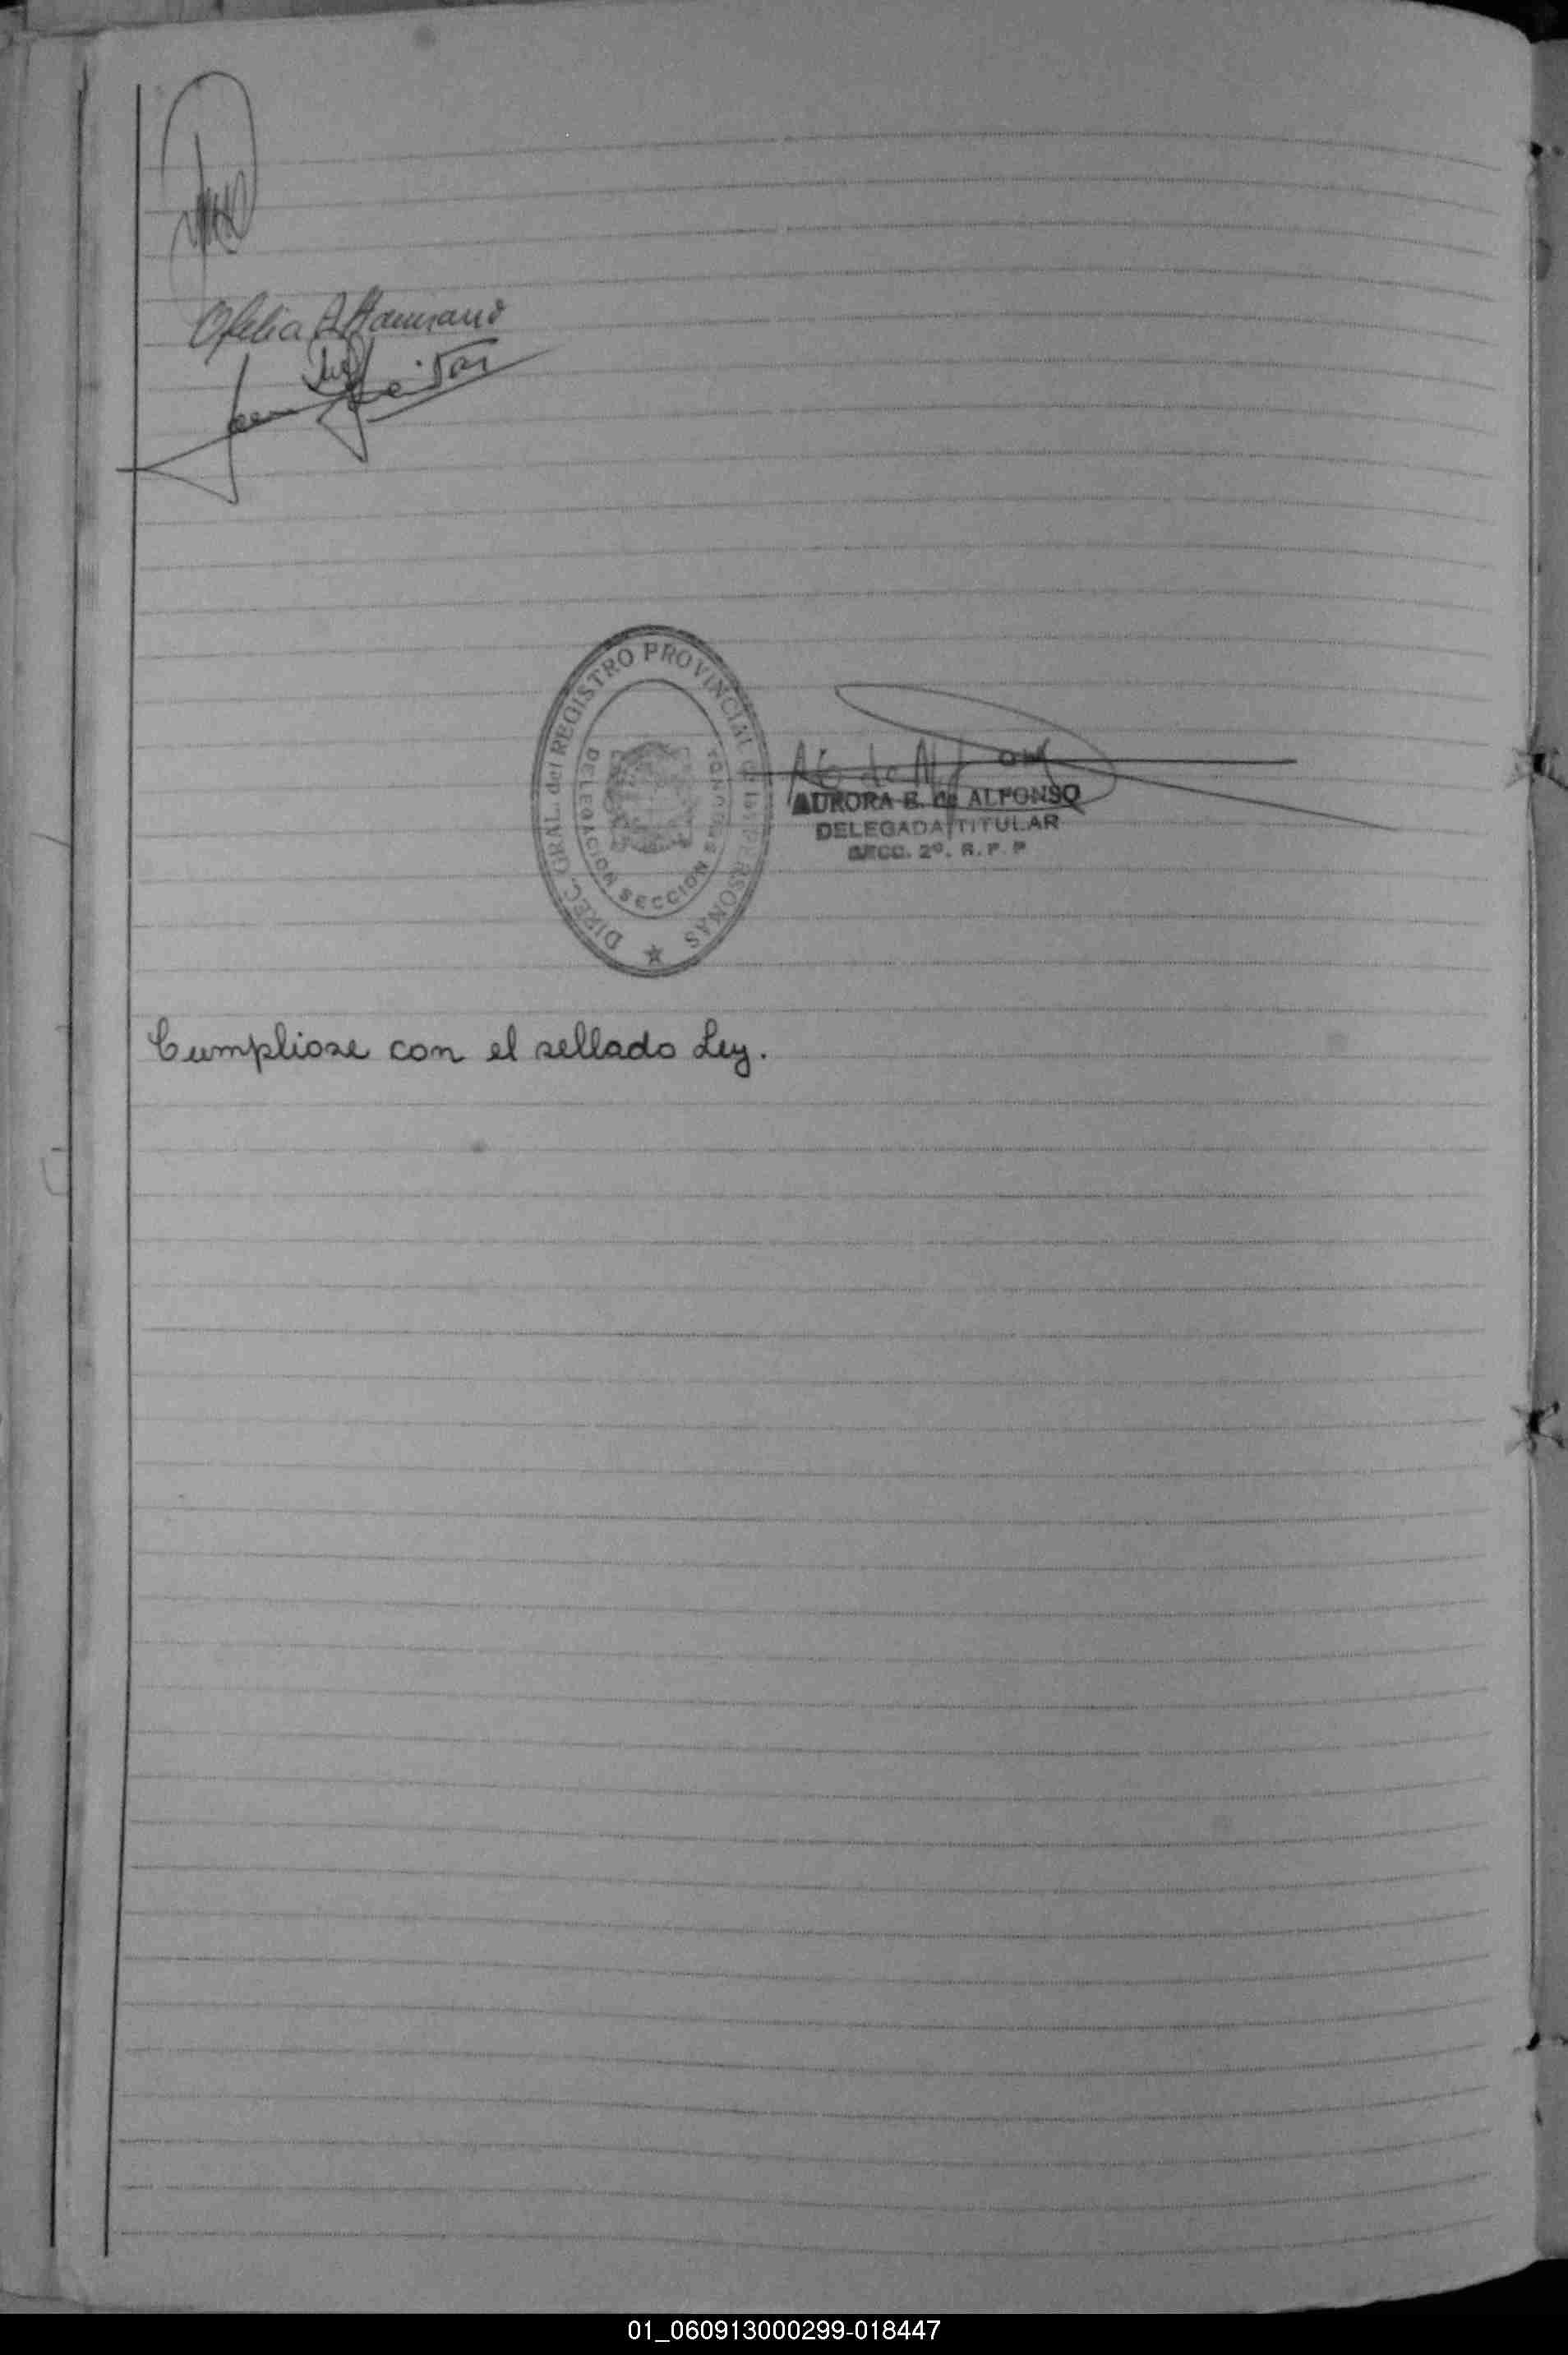 Ofelia A
DIREC. GRAL. del REGISTRO PROVINCIAL de las PERSONAS
DELEGACION SECCION SEGUNDA
A E de Alfonso
AURORA E. de ALFONSO
DELEGADA TITULAR
SECC. 2º. R. P. P
Cumpliose con el sellado Ley.
01_060913000299-018447